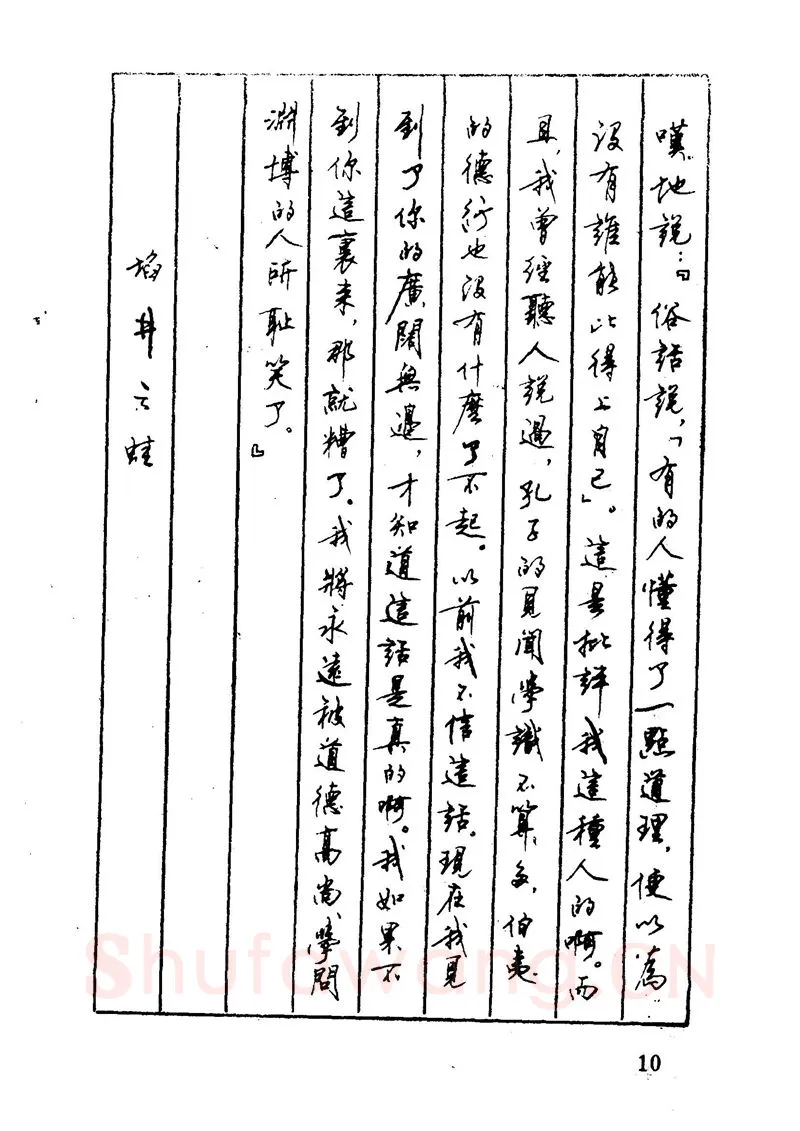 嘆地說：『俗話說，「有的人懂得了一點道理，便以為
沒有誰能比得上自己」。這是批評我這種人的啊。而
且，我曾經聽人說過，孔子的見聞學識不算多，伯夷
的德行也没有什麽了不起。以前我不信這話。現在我見
到了你的廣闊無邊，才知道這話是真的啊。我如果不
到你這裏来，那就糟了。我將永遠被道德高尚學問
淵博的人所耻笑了。』
埳井之蛙
10
Shufawang.CN